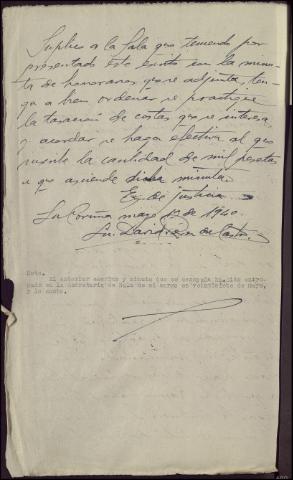 Suplico a la Sala que teniendo por
presentado este escrito con la minu-
ta de honorarios que se adjunta, ten-
ga a bien ordenar se practique
la tasación de costas que se interesa,
y acordar se haga efectiva al que
suscribe la cantidad de mil pesetas
a que asciende dicha minuta.
Es de justicia.
La Coruña mayo 17 de 1940.
Nota.
El anterior escrito y minuta que se acompaña ha sido entre-
gado en la Secretaría de Sala de mi cargo en veintisiete de Mayo,